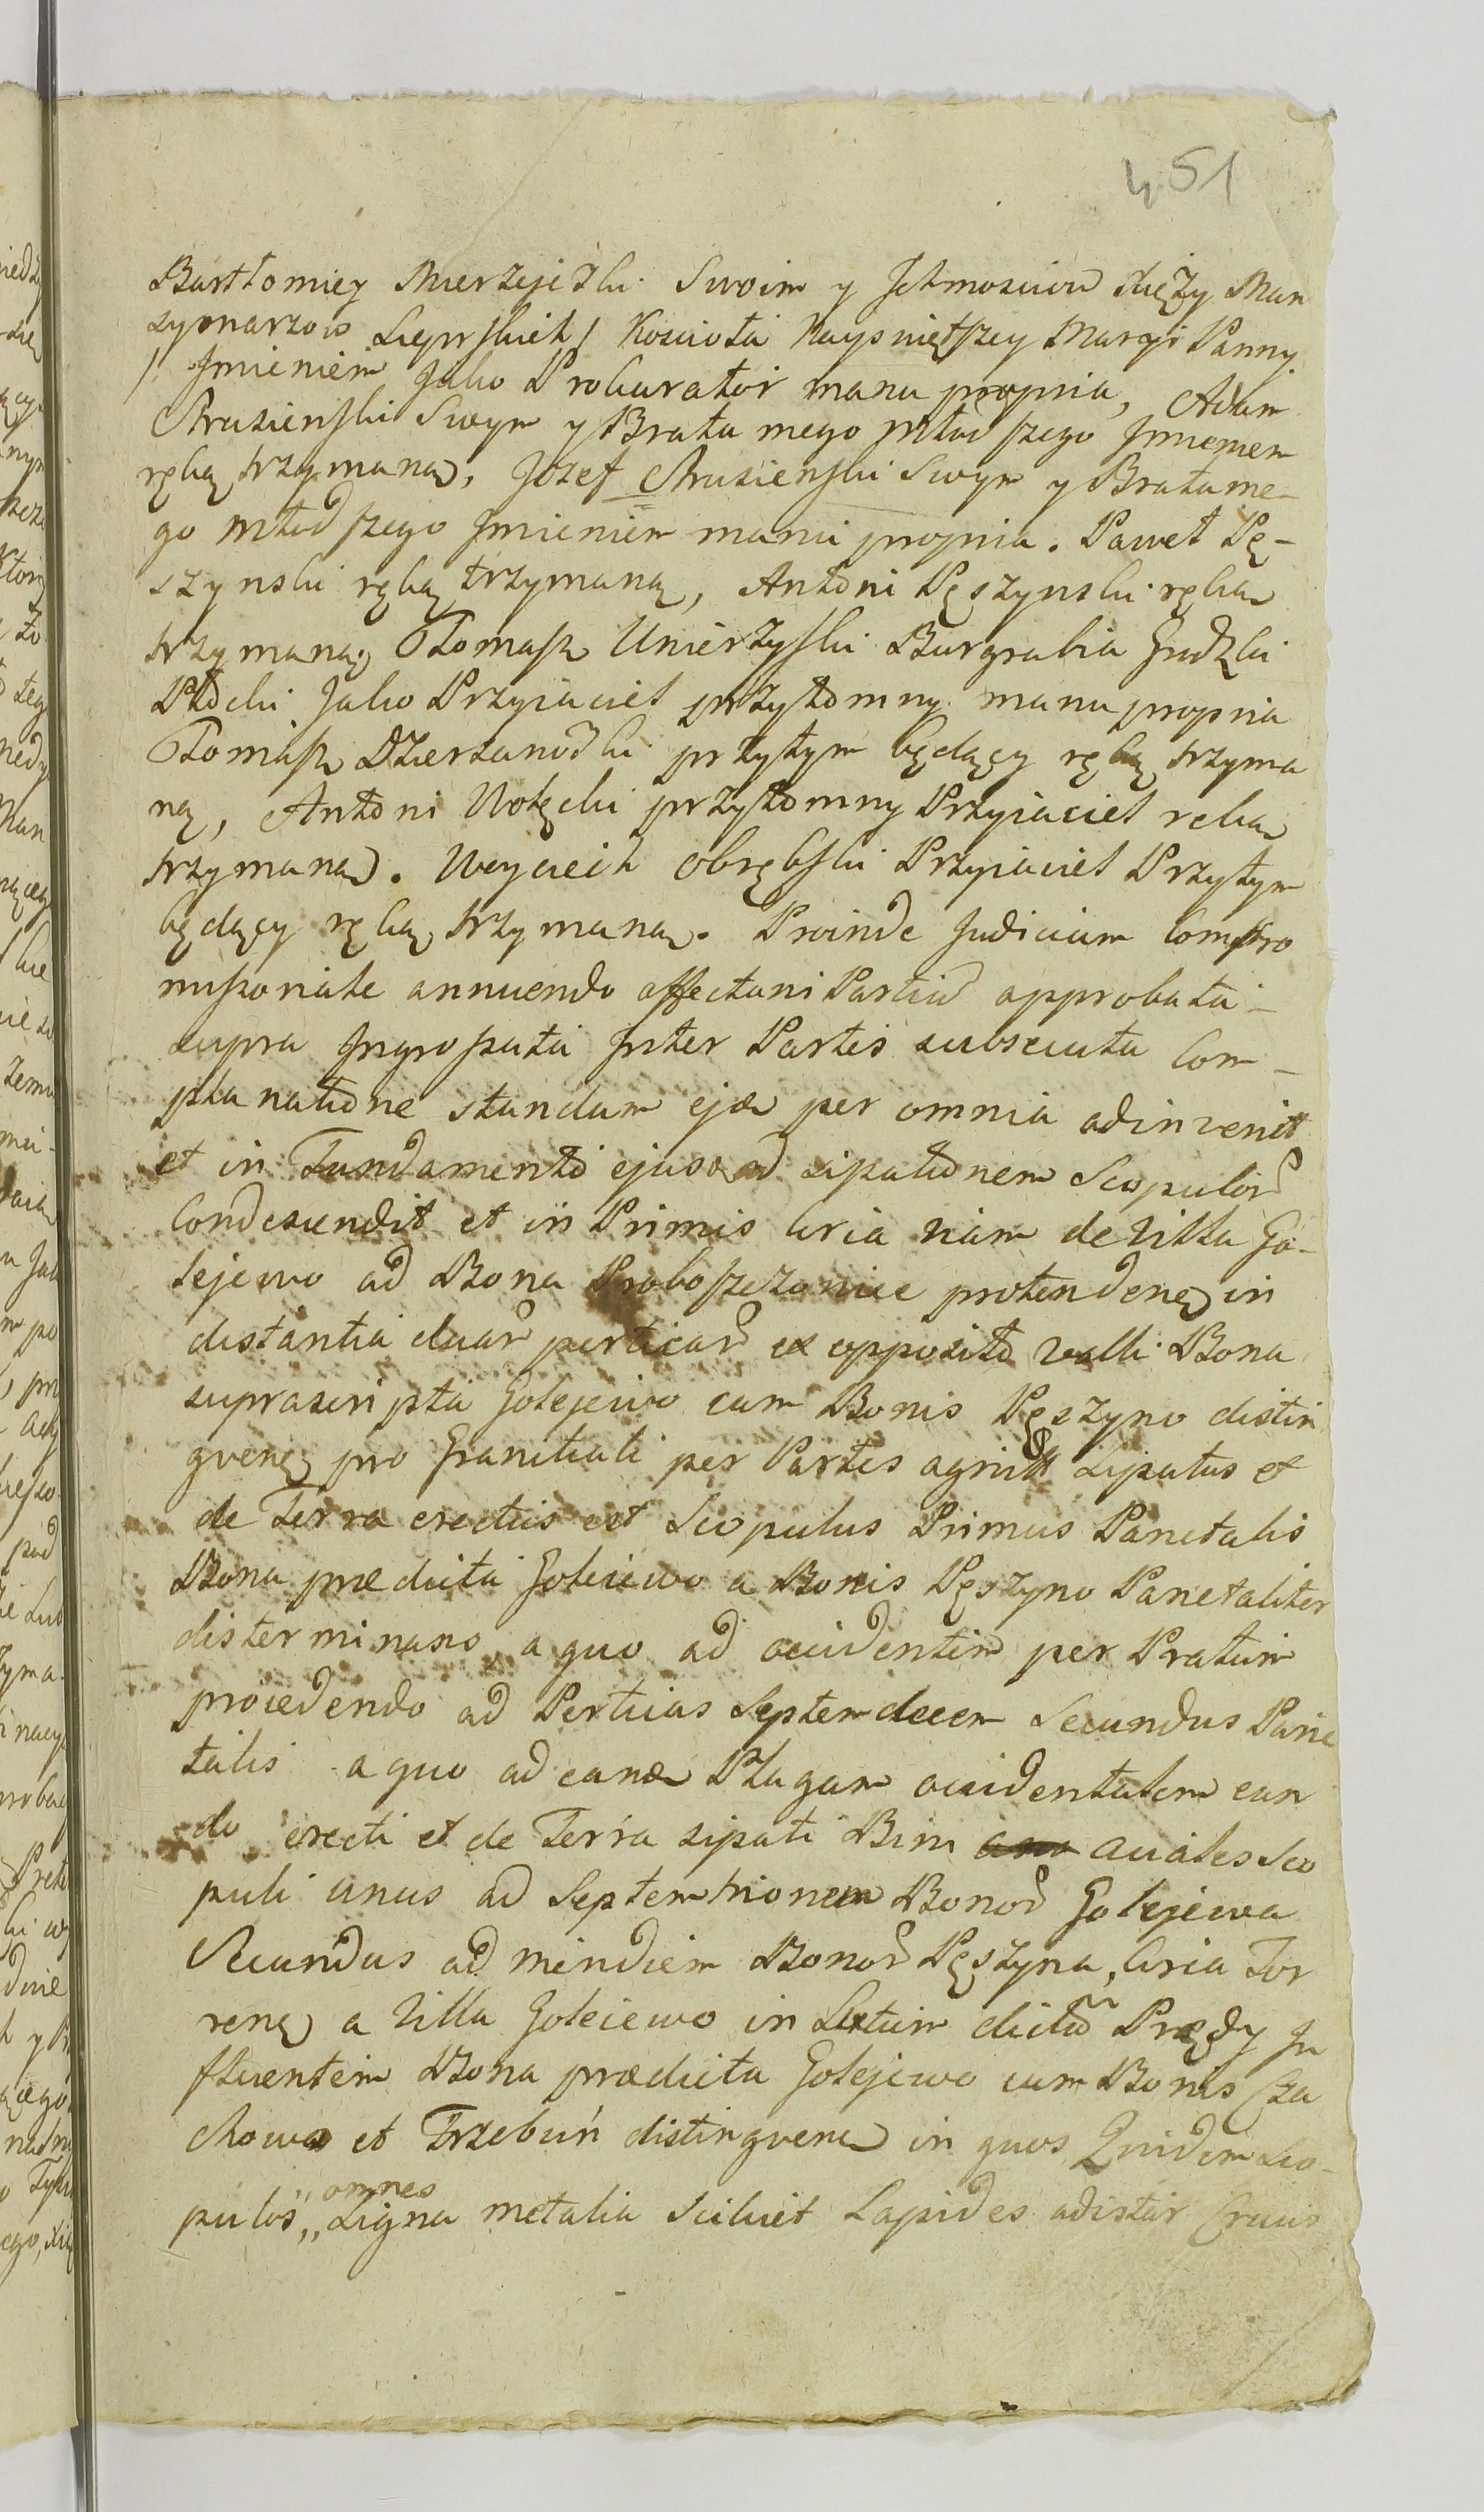 451
Bartłomiey Mierzejewski Swoim y Jchmosciow Xięży Man
syonarzow Sieprskich / Koscioła Nayswiętszey Maryi Panny
/ Jmieniem Jako Prokurator manu propria, Adam
Chrusienski Swym y Brata mego młodszego Jmieniem
ręką trzymaną, Jozef Chrusienski Swym y Brata me-
go młodszego Jmieniem manu propria. Paweł Pę-
szynski ręką trzymaną, Antoni Pęszynski ręką
trzymaną, Tomasz Unierzyski Burgrabia Grodzki
Płocki Jako Przyiaciel przytomny manu propria
Tomasz Dzierzanowski przytym będący ręką trzyma
ną, Antoni Wołęcki przytomny Przyiaciel ręką
trzymaną. Woyciech Obrębski Przyiaciel Przytym
będący ręką trzymaną. Proinde Judicium Compro
missoriale annuendo affectaõni Partiũ approbata
supra Jngrossata Jnter Partes subsecuta Com-
planatione standum ejæ per omnia adinvenit
et in Fundamento ejusd ad sipationem Scopulorũ
Condescendit et in Primis circa viam de Villa Go-
lejewo ad Bona Proboszczowice protendene in
distantia duarũ perticarũ ex opposito valli Bona
suprascripta Golejewo cum Bonis Pęszyno distin
gvene pro Granitiali per Partes agnit Sipatus et
de Terra erectus est Scopulus Primus Parietalis
Bona prædicta Golejewo a Bonis Pęszyno Parietaliter
disterminans, a quo ad occidentem per Pratum
procedendo ad Perticas Septemdecem Secundus Parie
talis a quo ad eandem Plagam occidentalem eun
do erecti et de Terra sipati Bini Acíales Sco
puli unus ad Septemtrionem Bonorũ Golejewa
Secundus ad meridiem Bonorũ Pęszyna, Circa Tor
rene a Villa Golejewo in Lutum dictũ Prądy Jn
fluentem Bona prædicta Golejewo cum Bonis Cza
chowo et Trzebuń distingvene in quos Quidem Sco-
pulos,, omnes
Ligna metalia Scilicet Lapides adistar Crucis